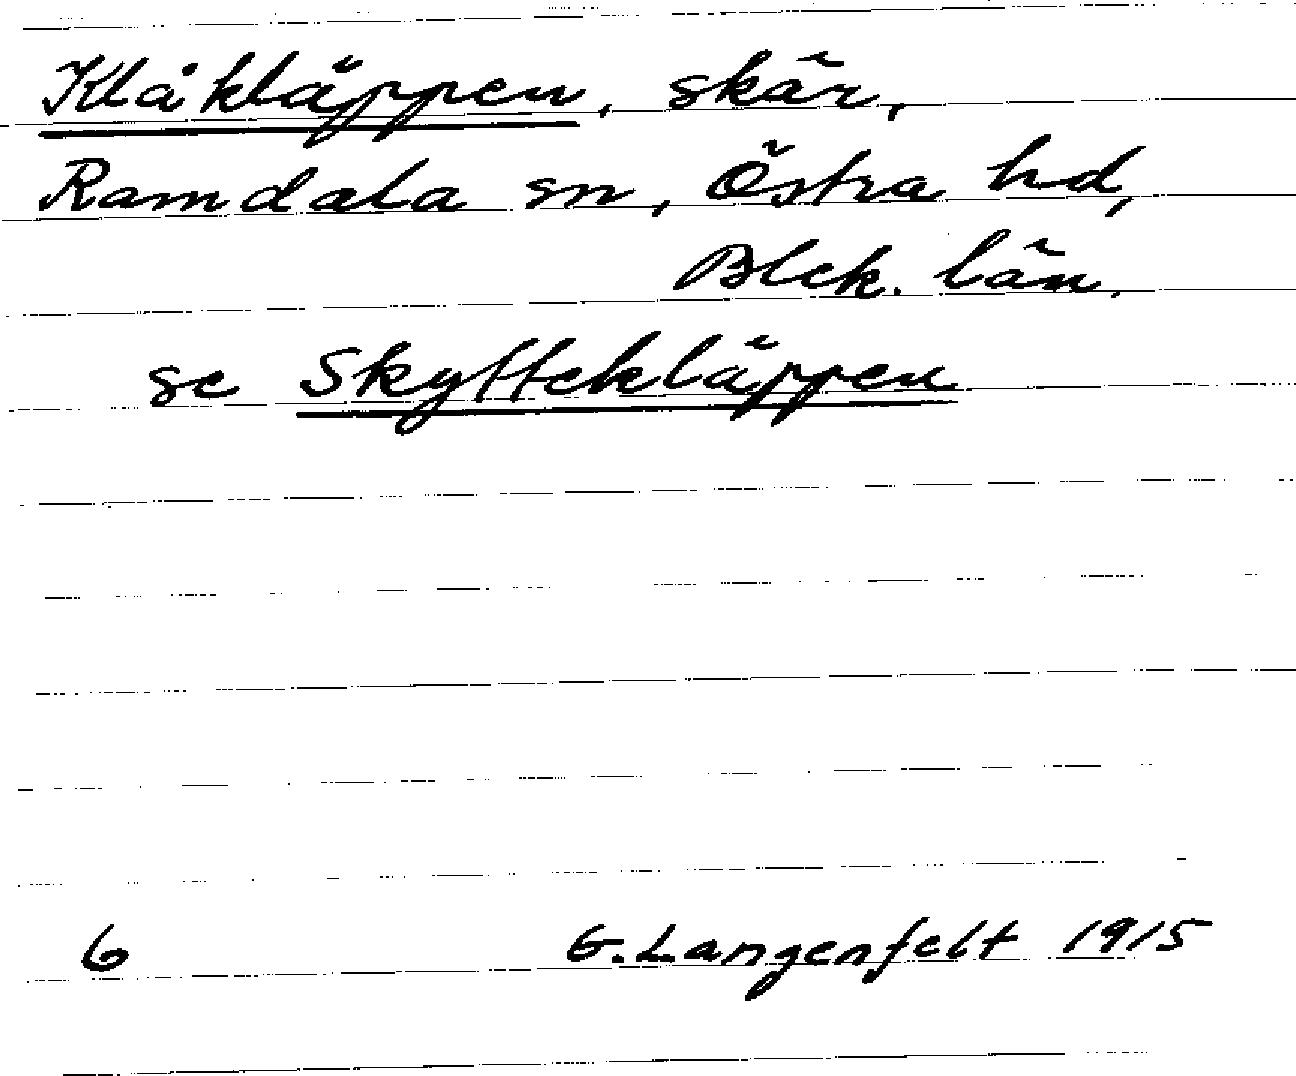 Klåkläppen, skär,
Ramdala sn, Östra hd,
Blek. län.
se Skyttekläppen
6 G. Langenfelt 1915